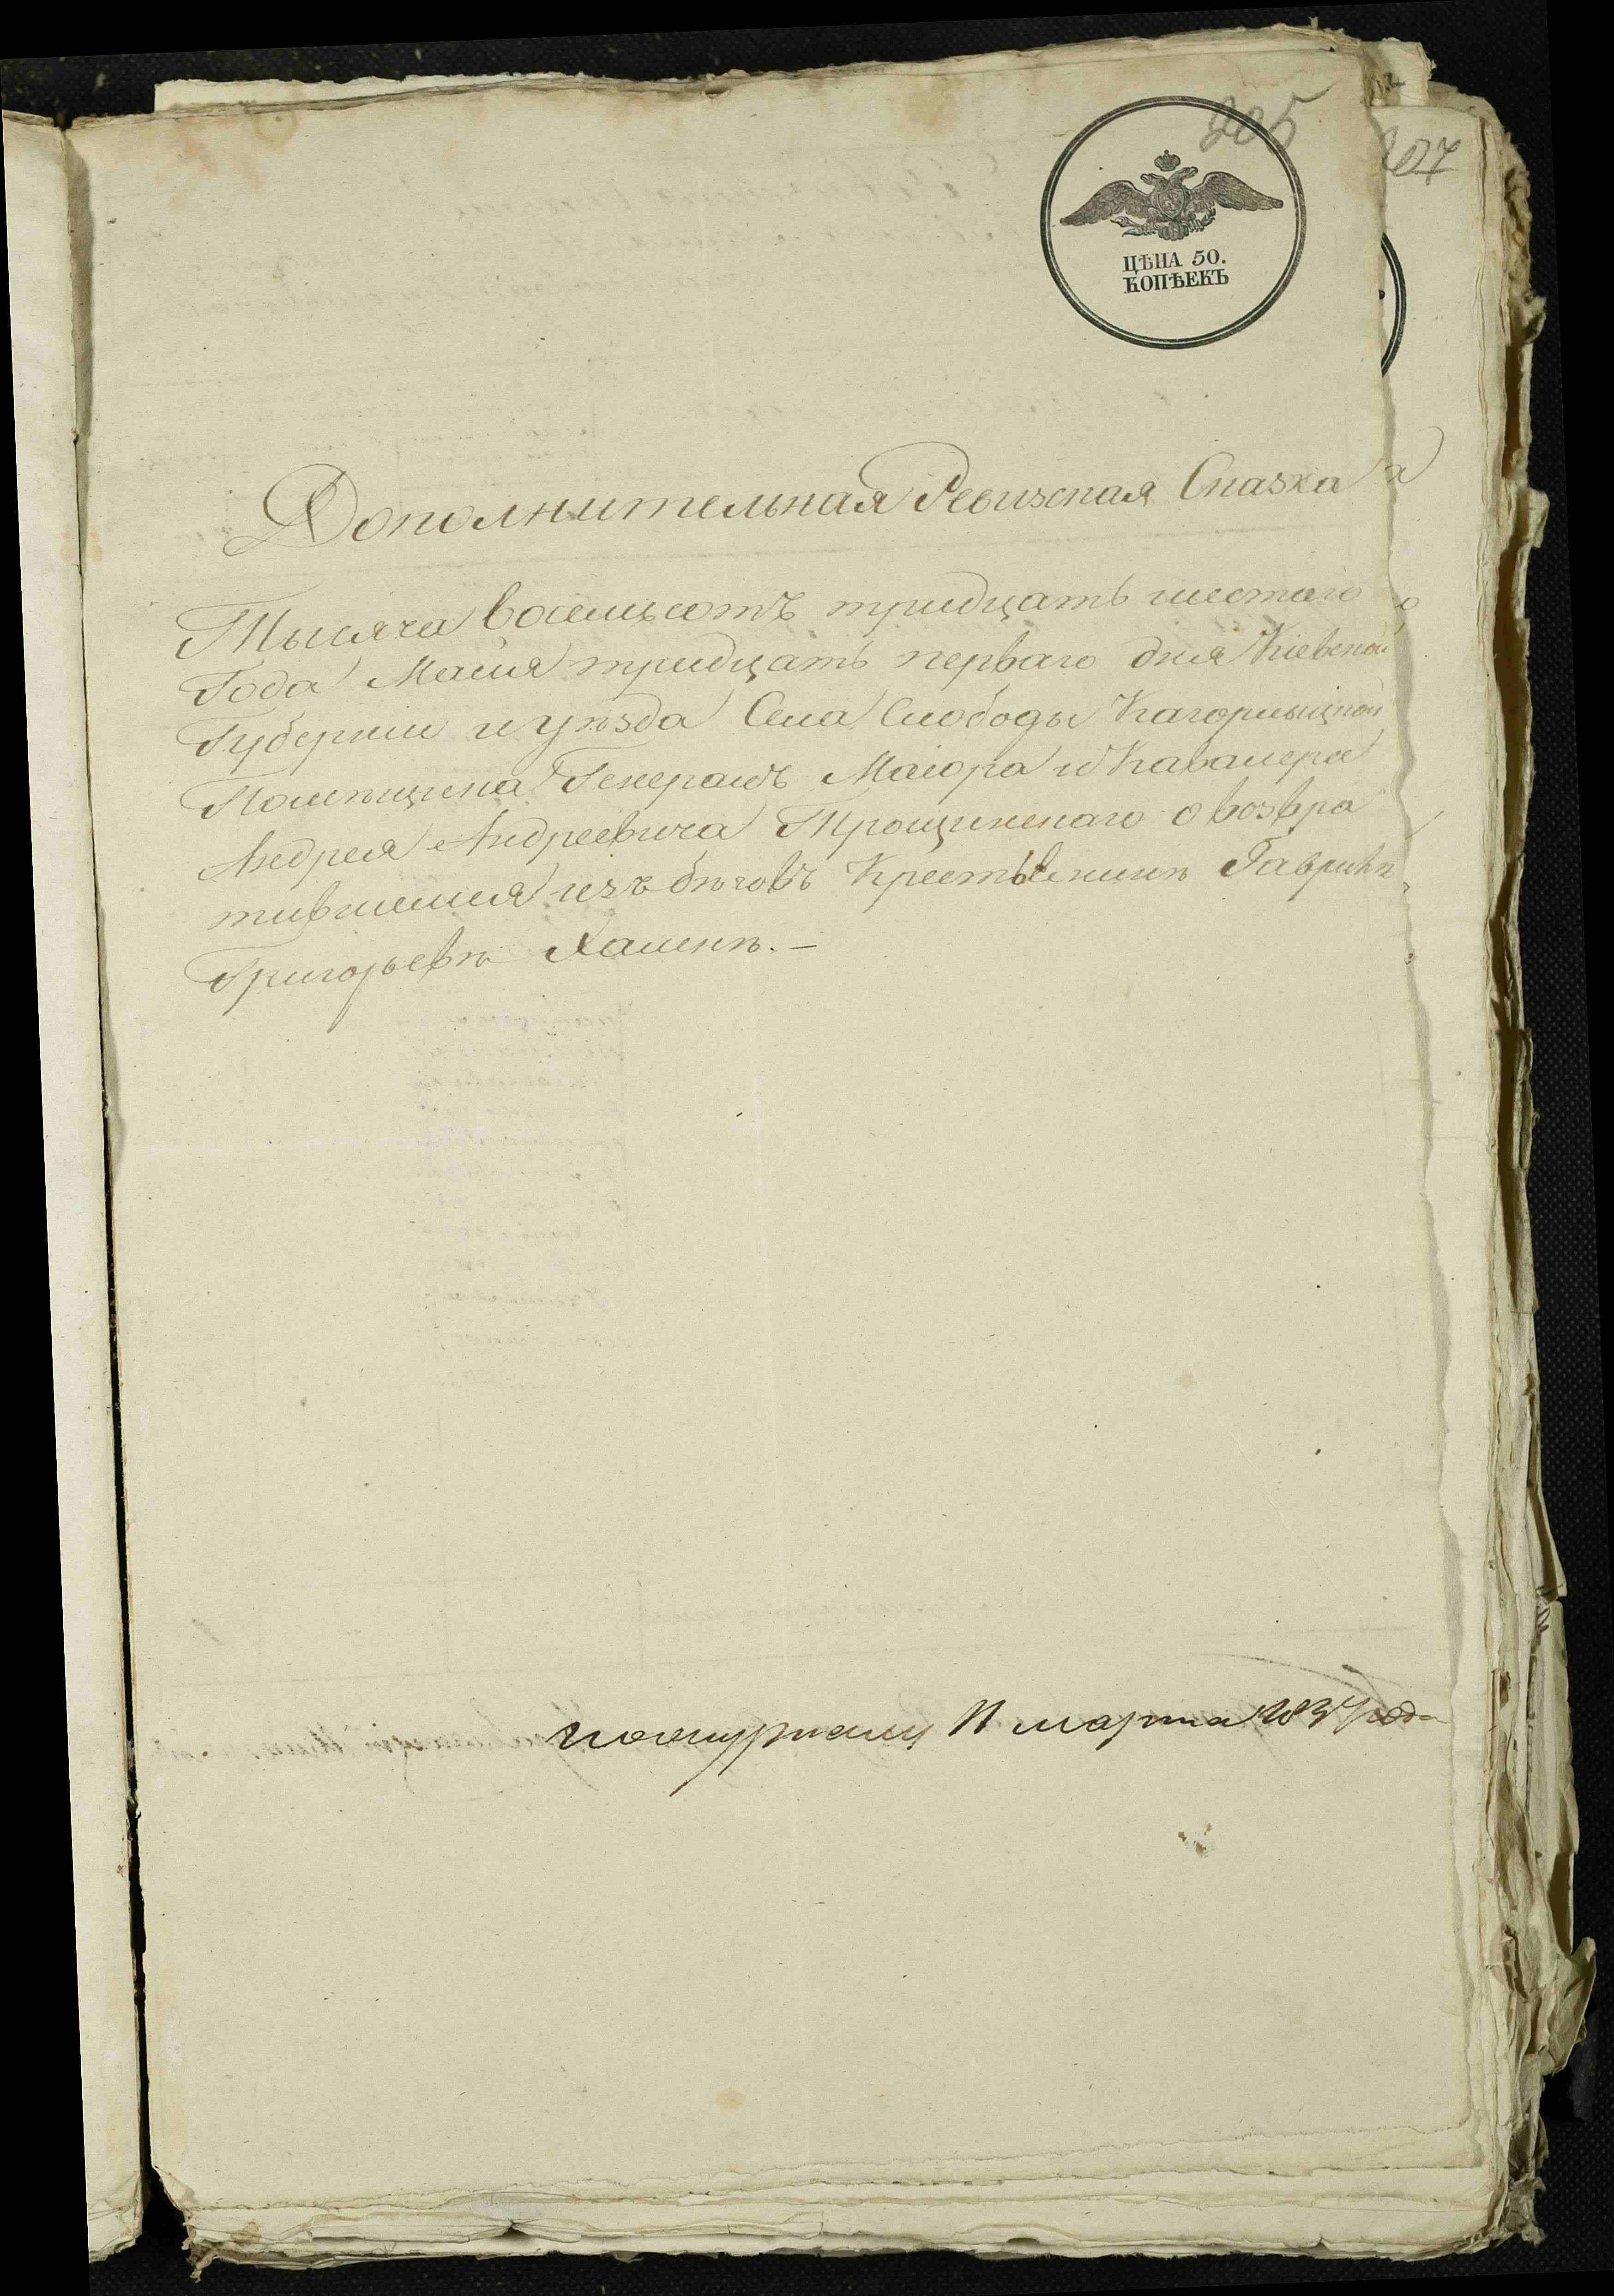 205
207
ЦѢНА 50.
КОПѢЕКЪ
Дополнительная Ревизская Сказка
Тысяча восемьсотъ тридцать шестаго
Года Маия тридцать перваго дня Кіевской
Губерніи и уѣзда Села Слободы Кагорлыцкой
Помѣщика Генералъ Маіора и Кавалера
Андрея Андреевича Трощинскаго о возвра
тившемся изъ бѣговъ Крестьянинѣ Гаврилѣ
Григорьевѣ
11 марта 1837 года